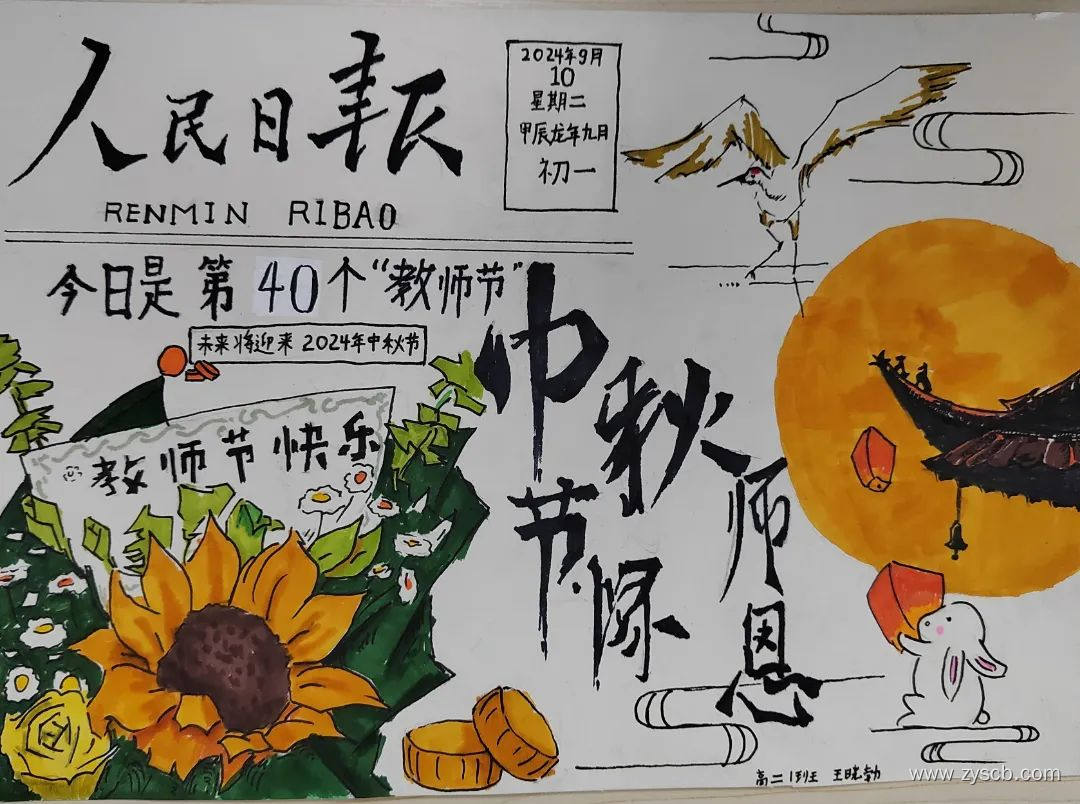 人民日報
RENMIN RIBAO
2024年9月
10
星期二
甲辰龙年九月
初一
今日是第40个“教师节”
未来将迎来 2024年中秋节
教师节快乐
中秋节
师恩
高二1班 王
www.zyscb.com